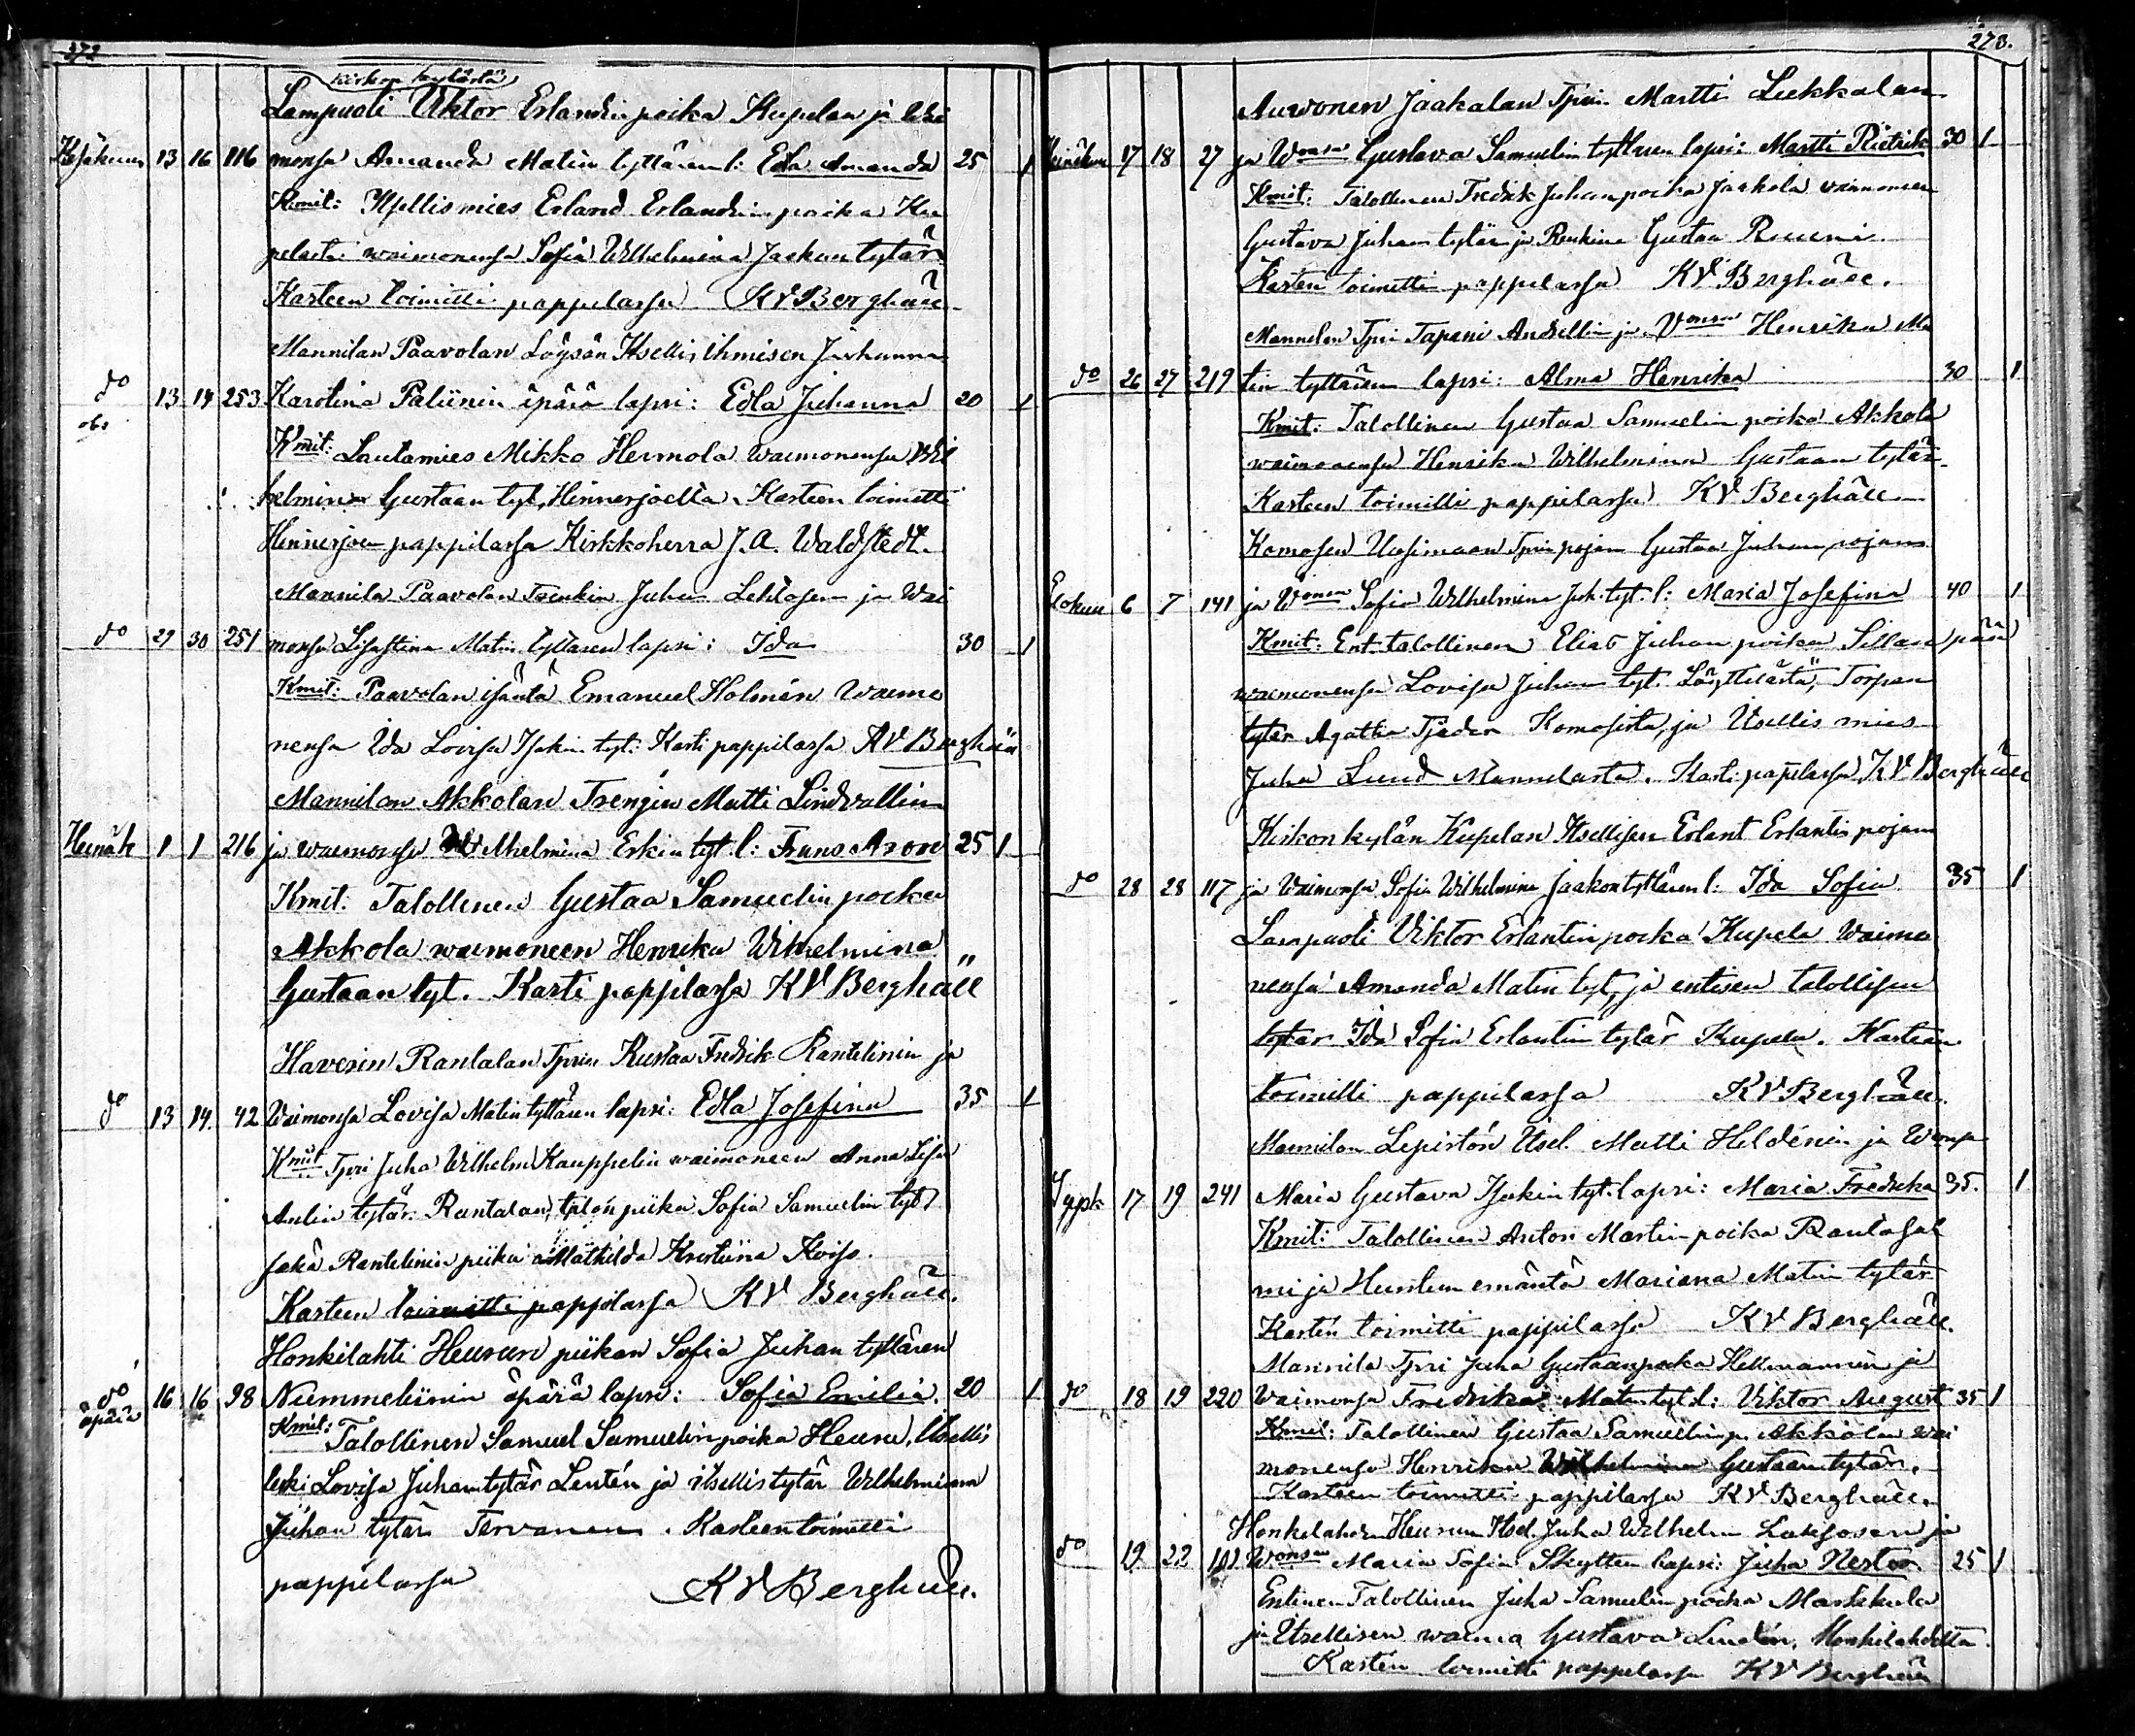 272
Kirkon kylästä
Lampuoti Viktor Erlandin poika Kupelan ja Wai
Kesäkuu 13 16 116 monsa Amanda Matin tyttären l: Edla Amanda 25 1
Kmit: Itsellismies Erland Erlandin poika Ku
pelasta waimonensa Sofia Wilhelmina Jaakon tytär
Kasteen toimitti pappilassa KV Berghäll
Mannilan Paavolan Itsellis ihmisen Johanna
do 13 14 253 Karolina Paliinin äpärä lapsi: Edla Johanna 20 1
Kmit: Lautamies Mikko Hermola waimonensa Wil
helmina Gustaan tyt, Hinnerjoella. Kasteen toimitti
Hinnerjoen pappilassa Kirkkoherra J. A. Waldstedt.
Mannila Paavolan Trenkin Juhan Lehtosen ja Wai
do 29 30 251 monsa Lisastina Matin tyttären lapsi: Ida 30 1
Kmit: Paavolan isäntä Emanuel Holmén Waimo
nensa Ida Lovisa Isakin tyt: Kasti pappilassa KV Berghäll
Mannilan Akkolan Trengin Matti Lindvallin
Heinäk 1 1 216 ja waimonsa Wilhelmina Erkin tyt. l: Frans Arone 25 1
Kmit: Talollinen Gustaa Samuelin poika
Akkola waimoneen Henrika Wilhelmina
Gustaan tyt. Kasti pappilassa KV Berghäll
Haverin Rantalan Tprin Kustaa Fredrik Rantelinin ja
do 13 14. 42 Waimonsa Lovisa Matin tyttären lapsi: Edla Josefina 35 1
Kmit Tpri Juha Wilhelm Kauppelin waimoneen Anna Lisa
Antin tytär. Rantalan, talon piika Sofia Samuelin tyt
sekä Rantelinin piika Mathilda Kristiina
Kasteen toimitti pappilassa KV Berghäll.
Honkilahti Heurun piikan Sofia Juhan tyttären
do äpärä 16 16 98 Nummeliinin äpärä lapsi: Sofia Emilia. 20 1
Kmit: Talollinen Samuel Samuelin poika Heuru, Itsellis
leski Lovisa Juhan tytär Lentén ja itsellistytär Wilhelmiina
Juhan tytär Tervanen. Kasteen toimitti
pappilassa KV Berghäll.
273.
Auvonen Jaakolan Tprin Martti Lukkalan
Heinäkuu 17 18 27 ja Wonsa Gustava Samuelin tyttären lapsi: Martti Rietrik 30 1
Kmit: Talollinen Fredrik Juhan poika Jaakola waimoneen
Gustava Juhan tytär ja Renkinä Gustaa Ruuni.
Kasteen toimitti pappilassa KV Berghäll.
Mannilan Tpri Tapani Andellin ja Vonsa Henrika Ma
do 26 27 219 tin tyttären lapsi: Alma Henrika 30 1
Kmit: Talollinen Gustaa Samuelin poika Akkola
waimonensa Henrika Wilhelmina Gustaan tytär
Kasteen toimitti pappilassa KV Berghäll
Komosen Uusimaan Tprin pojan Gustaa Juhan pojan
Elokuu 6 7 141 ja Wonsa Sofia Wilhelmina Juh. tyt. l: Maria Josefina 40 1
Kmit: Ent. talollinen Elias Juhan poika Sillan pään
waimonensa Lovisa Juhan tyt. Löyttilästä, Torpan
tytär Agatha Tjäder Komosista, ja Itsellis mies
Juha Lund Mannilasta. Kasti pappilassa KV Berghäll
Kirkon kylän Kupelan Itsellisen Erlant Erlantin pojan
do 28 28 117 ja Waimonsa Sofia Wilhelmina Jaakon tyttären l: Ida Sofia 35 1
Lampuoti Viktor Erlantin poika Kupela Waimo
nensa Amanda Matin tyt, ja entisen talollisen
tytär Ida Sofia Erlantin tytär Kupela. Kasteen
toimitti pappilassa KV Berghäll.
Mannilan Lepistön Itsel. Matti Heldénin ja Wonsa
Syysk 17 19 241 Maria Gustava Isakin tyt. lapsi: Maria Fredrika 35. 1
Kmit: Talollinen Anton Martin poika Rantasal
mi ja Hunlun emäntä Mariana Matin tytär
Kasten toimitti pappilassa KV Berghäll.
Mannila Tpri Juha Gustaanpoika Hellmannin ja
do 18 19 220 Waimonsa Fredrika Matin tyt. l: Viktor August 35 1
Kmit: Talollinen Gustaa Samuelin p. Akkolan wai
monensa Henrika Wilhelmina Gustaan tytär.
Kasteen toimitti pappilassa KV Berghäll.
Honkilahden Heurun Itsel. Juha Wilhelm Laksosen ja
do 19 22 101 Wonsa Maria Sofia Skytten lapsi: Juha Nestor. 25 1
Entinen Talollinen Juha Samuelin poika Markkula
ja Itsellisen waimo Gustava Lindén, Honkilahdelta
Kasten toimitti pappilassa KV Berghäll